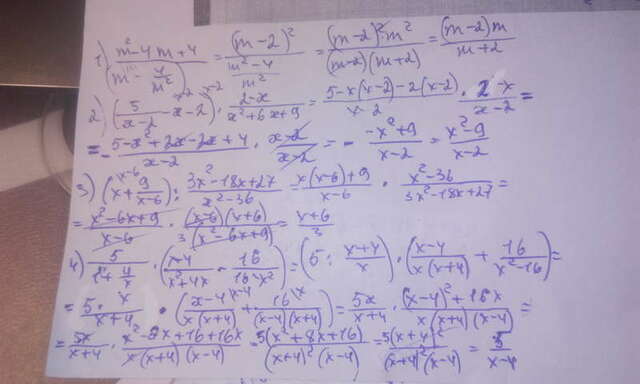 1) (m²-4m+4)/(m - 4/m²) = (m-2)²/((m²-4)/m²) = (m-2)²m²/((m-2)(m+2)) = (m-2)m/(m+2)
2) (5/(x-2) - x - 2) · (2-x)/(x²+6x+9) = (5-x(x-2)-2(x-2))/(x-2) · (2-x)/(x-2) =
= - (5-x²+2x-2x+4)/(x-2) · (x-2)/(x-2) = - (-x²+9)/(x-2) = (x²-9)/(x-2)
3) (x + 9/(x-6)) : (3x²-18x+27)/(x²-36) = (x(x-6)+9)/(x-6) · (x²-36)/(3x²-18x+27) =
= (x²-6x+9)/(x-6) · (x-6)(x+6)/(3(x²-6x+9)) = (x+6)/3
4) 5/(1+4/x) · (x-4)/(x²+4x) - 16/(16-x²)) = (5 : (x+4)/x) · ((x-4)/(x(x+4)) + 16/(x²-16)) =
= 5 · x/(x+4) · ((x-4)/(x(x+4)) + 16/((x-4)(x+4))) = 5x/(x+4) · ((x-4)²+16x)/(x(x+4)(x-4)) =
= 5x/(x+4) · (x²-8x+16+16x)/(x(x+4)(x-4)) = 5(x²+8x+16)/((x+4)²(x-4)) = 5(x+4)²/((x+4)²(x-4)) = 5/(x-4)